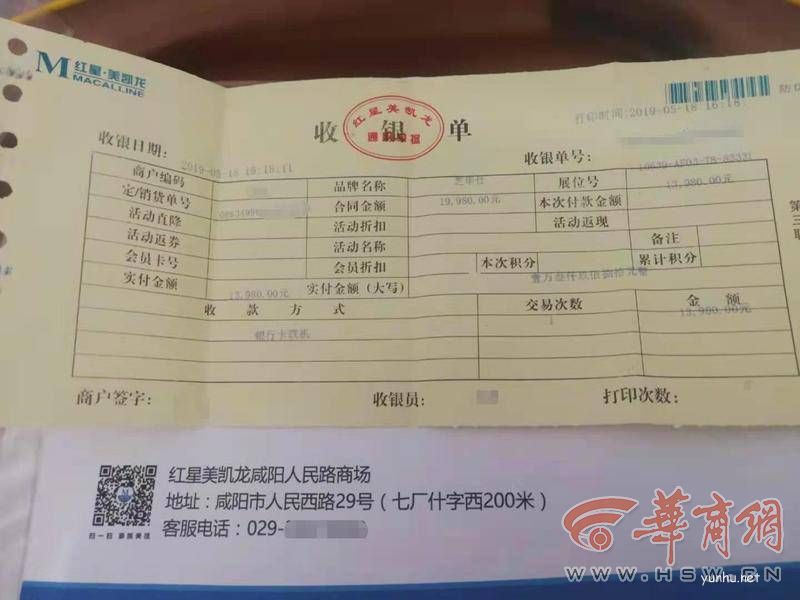 M 红星·美凯龙
MACALLINE
红星美凯龙
收银单
打印时间:2019-05-18 16:18
收银日期:
2019-05-18 16:18:11
收银单号:
商户编码
品牌名称
芝华仕
展位号
定/销货单号
合同金额
19,980.00元
本次付款金额
13,980.00元
活动直降
活动折扣
活动返现
活动返券
活动名称
备注
会员卡号
会员折扣
本次积分
累计积分
实付金额
13,980.00元
实付金额(大写)
壹万叁仟玖佰捌拾元整
收款方式
交易次数
金额
银行卡联机
1
13,980.00元
商户签字:
收银员:
打印次数:
第三联
红星美凯龙咸阳人民路商场
地址:咸阳市人民西路29号(七厂什字西200米)
客服电话:029-
華商網
WWW.HSW.CN
yunhu.net